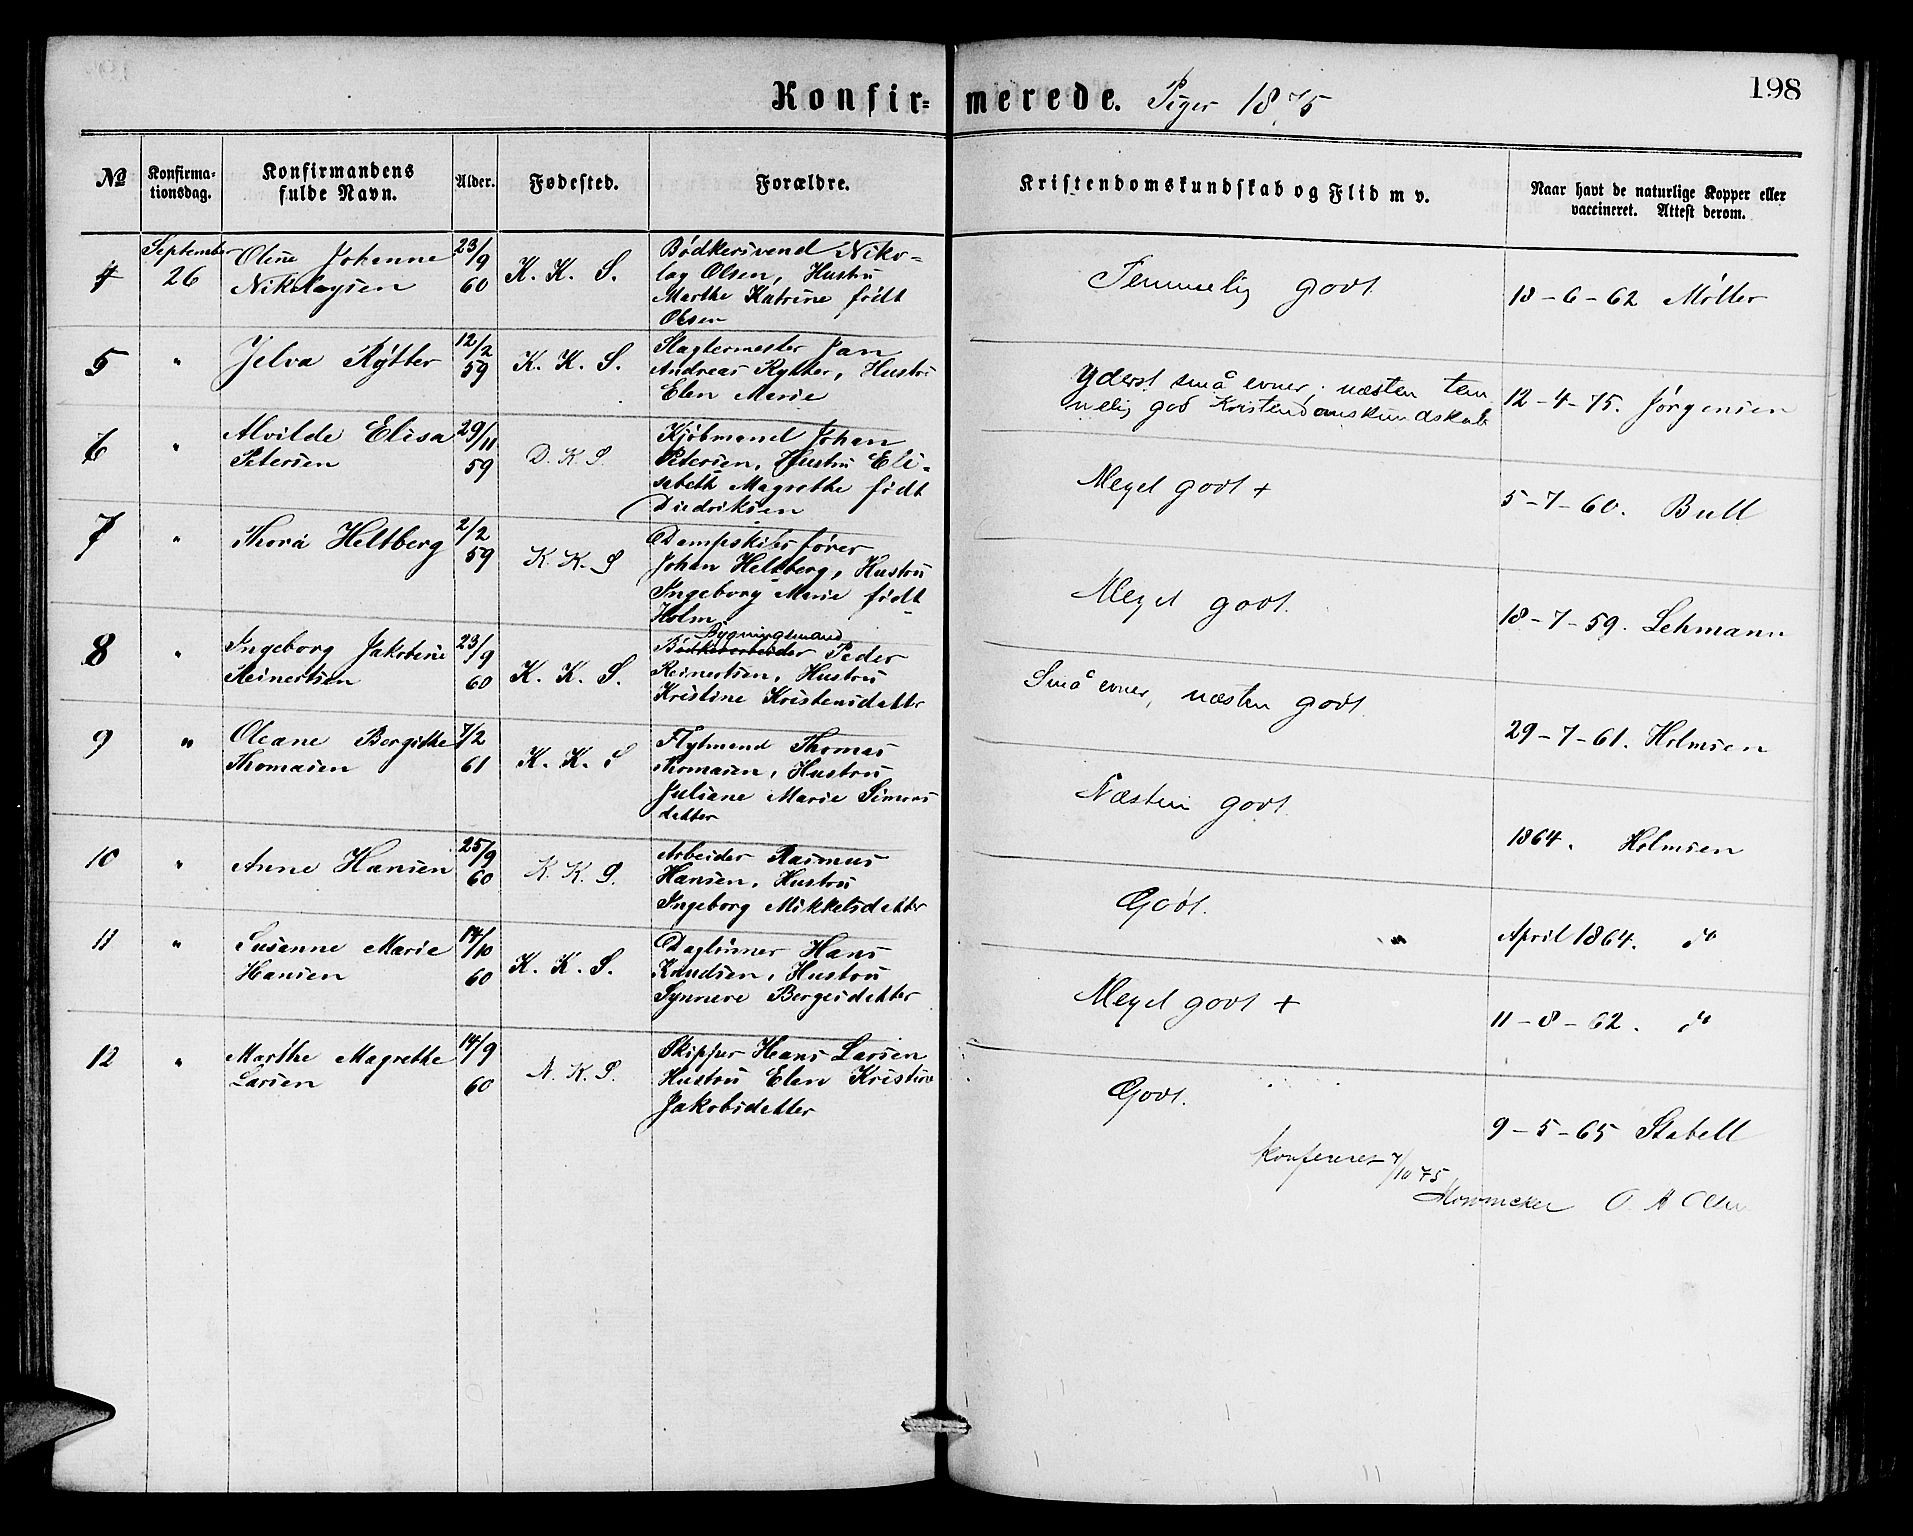 Konfir= merede. Piger 1875
198
№
Konfirma-
tionsdag.
Konfirmandens
fulde Navn.
Alder.
Fødested.
Forældre.
Kristendomskundskab og Flid m v.
Naar havt de naturlige Kopper eller
vaccineret. Attest derom.
4
September
26
Oline Johanne
Nikolaysen
23/9
60
K. K. S.
Bødkersvend Niko-
lay Olsen, Hustru
Marthe Katrine født
Olsen
Temmelig godt
18-6-62 Møller
5
"
Jelva Rÿtter
12/2
59
K. K. S.
Slagtermester Jan
Andreas Rytter, Hustru
Elen Marie
Yderst små evner. næsten tem
melig god Kristendomskundskab
12-4-75. Jørgensen
6
"
Alvilde Elisa
Petersen
29/11
59
D. K. S.
Kjøbmand Johan
Petersen, Hustru Eli-
sabeth Magrethe født
Diedriksen
Meget godt +
5-7-60. Bull
7
"
Thora Heltberg
2/2
59
K. K. S
Dampskibsfører
Johan Heltberg, Hustru
Ingeborg Marie født
Holm
Meget godt.
18-7-59. Lehmann
8
"
Ingeborg Jakobine
Reinertsen
23/9
60
K. K. S.
Bygningsmand
Bødkerarbeider Peder
Reinertsen, Hustru
Kristine Kristensdatter
Små evner, næsten godt
29-7-61. Holmsen
9
"
Oleane Bergithe
Thomasen
7/2
61
K. K. S
Flytmand Thomas
Thomasen, Hustru
Juliane Marie Simons
datter
Næsten godt.
1864. Holmsen
10
"
Anne Hansen
25/9
60
K. K. S.
Arbeider Rasmus
Hansen, Hustru
Ingeborg Mikkelsdatter
Godt.
"
April 1864. do
11
"
Susanne Marie
Hansen
14/10
60
K. K. S.
Daglønner Hans
Knudsen, Hustru
Synneve Bergesdatter
Meget godt +
11-8-62. do
12
"
Marthe Magrethe
Larsen
14/9
60
N. K. S.
Skipper Hans Larsen
Hustru Elen Kristine
Jakobsdatter
Godt.
9-5-65 Stabell
Konfereret 7/10 75
Mowinckel O. A Olsen